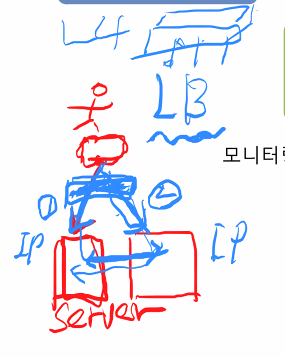 L4
LB
모니터링
① ②
IP IP
Server